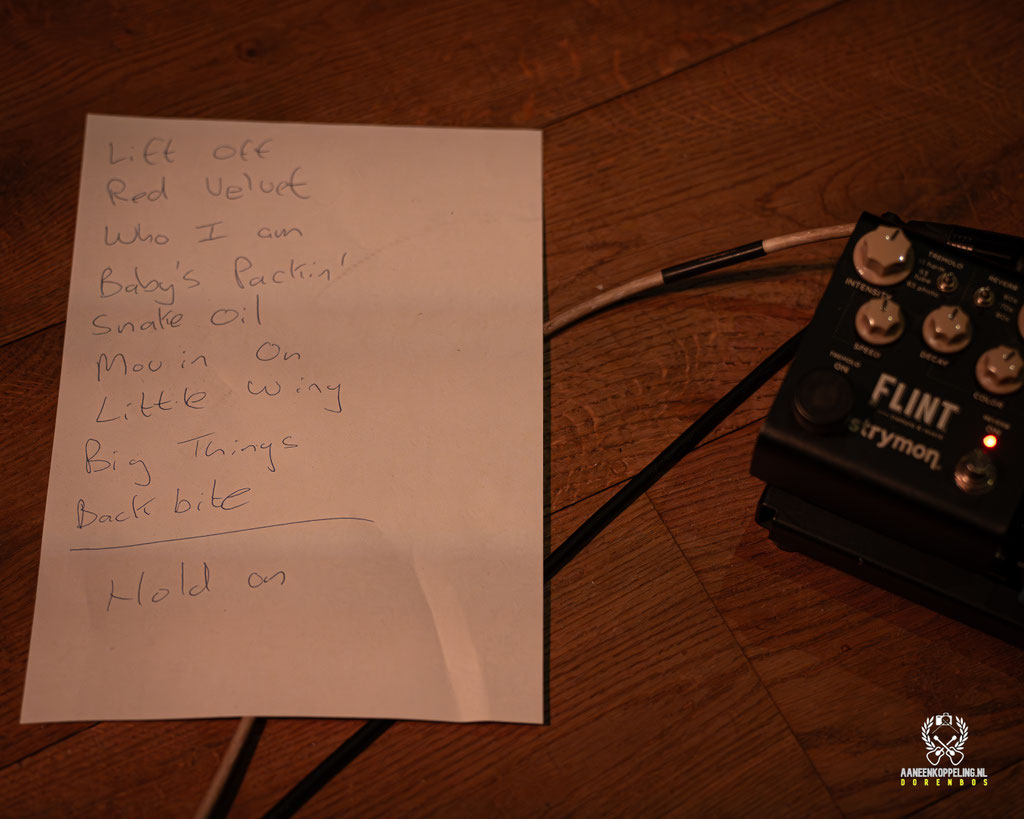 Lift Off
Red Velvet
Who I am
Baby's Packin'
Snake Oil
Movin On
Little Wing
Big Things
Back bite
Hold on
TREMOLO
REVERB
INTENSITY
SPEED
DECAY
COLOR
TREMOLO
ON
REVERB
ON
FLINT
strymon
AANEENKOPPELING.NL
DORENBOS